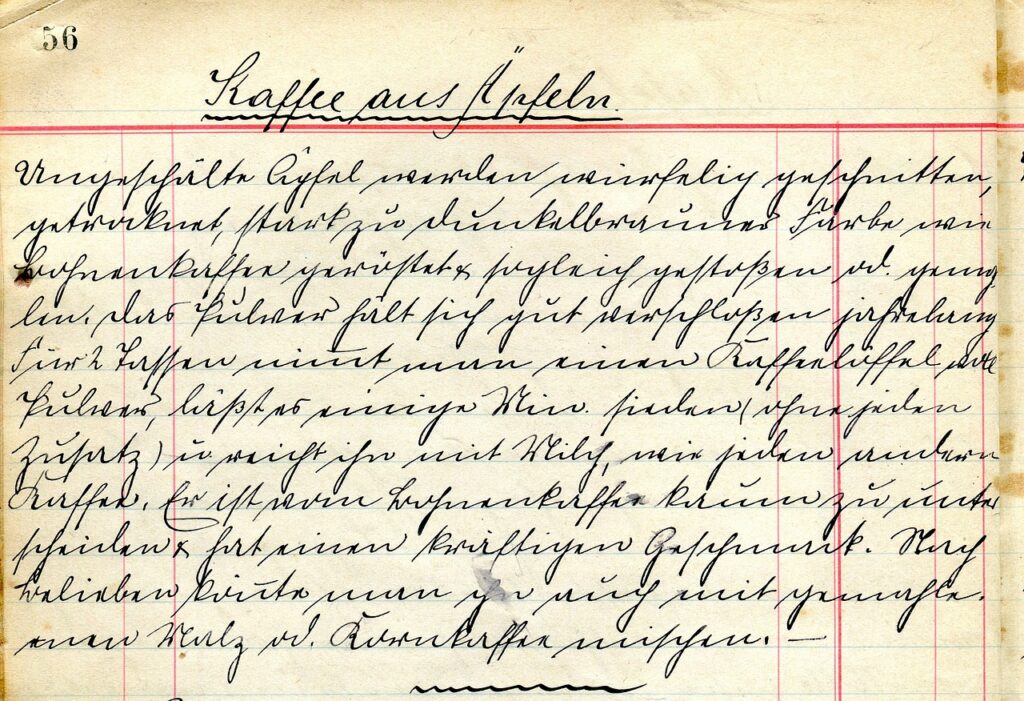 56
Kaffee aus Äpfeln.
Ungeschälte Äpfel werden würfelig geschnitten,
getrocknet, stark zu dunkelbrauner Farbe wie
Bohnenkaffee geröstet & sogleich gestoßen od. gemah-
len. Das Pulver hält sich gut verschloßen jahrelang
Für 2 Tassen nim̄t man einen Kaffeelöffel voll
Pulver, läßt es einige Min. sieden (ohne jeden
Zusatz) u. reicht ihn mit Milch, wie jeden andern
Kaffee. Er ist vom Bohnenkaffee kaum zu unter
scheiden & hat einen kräftigen Geschmack. Nach
Belieben kön̄te man ihn auch mit gemahle.
enen Malz od. Kornkaffee mischen. —